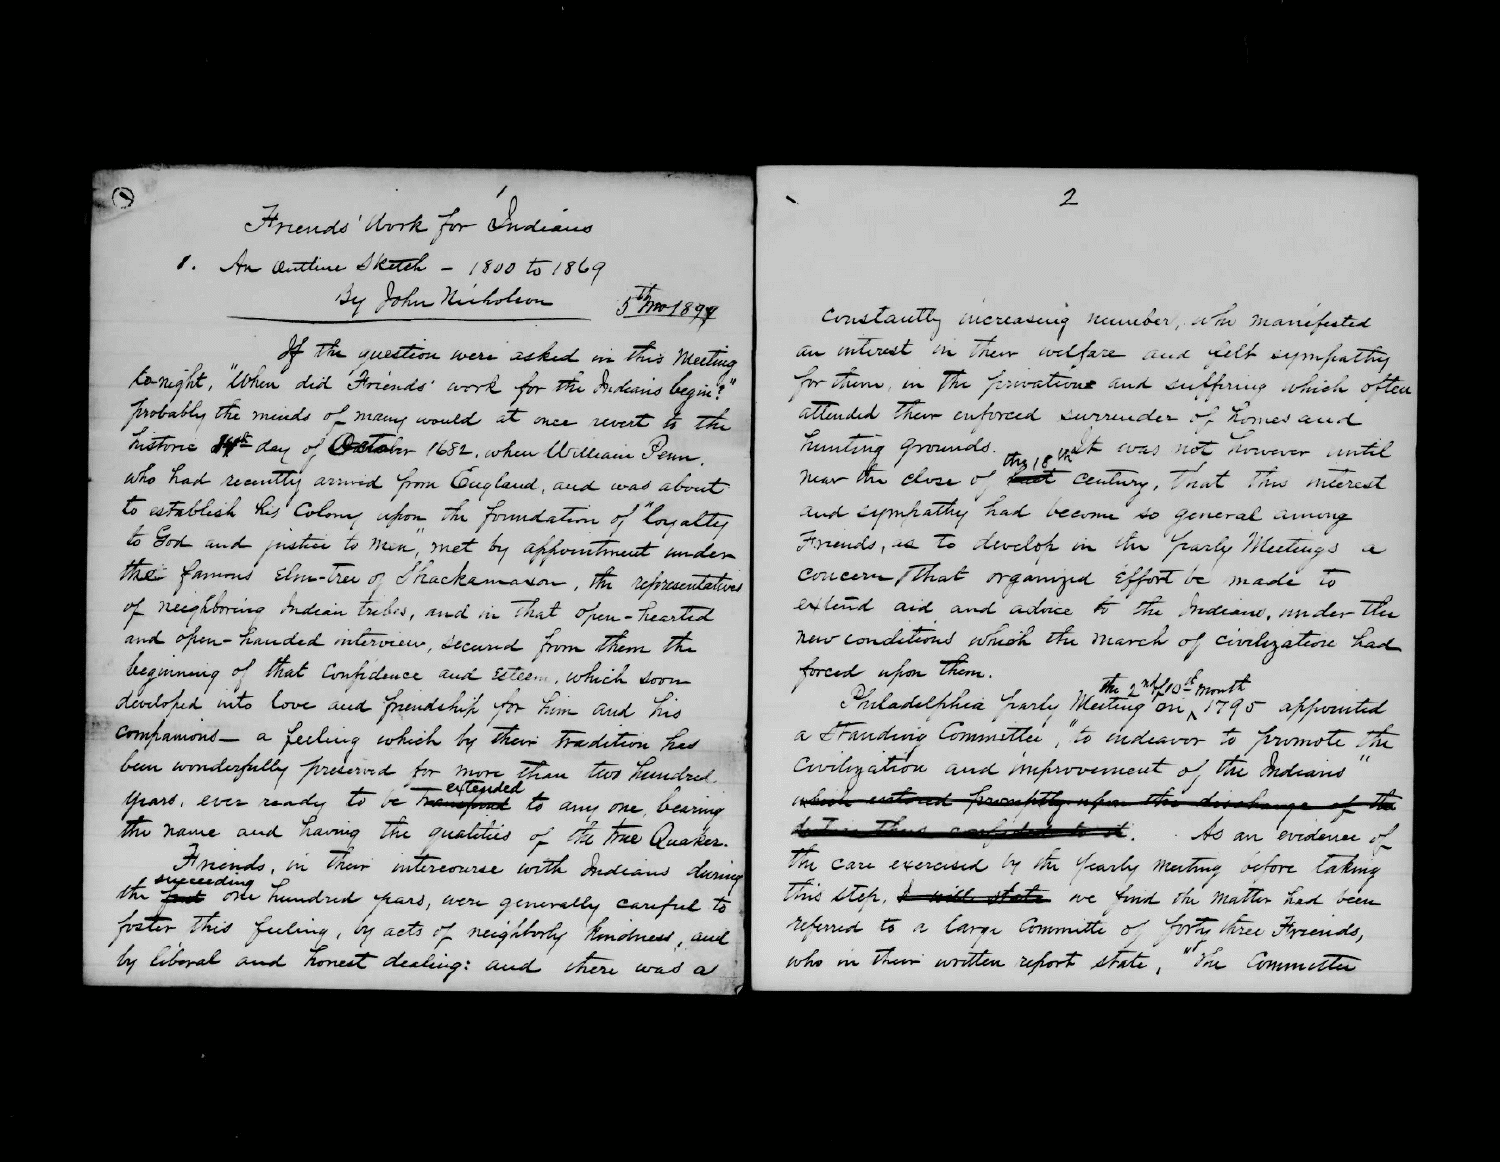 1
Friends' Work for Indians
1. An Outline Sketch - 1800 to 1869
By John Nicholson
5th mo 1899
If the question were asked in this Meeting
to-night, "When did Friends' work for the Indians begin?"
probably the minds of many would at once revert to the
historic day of October 1682, when William Penn,
who had recently arrived from England, and was about
to establish his Colony upon the foundation of "loyalty
to God and justice to men", met by appointment under
the famous Elm-tree of Shackamaxon, the representatives
of neighboring Indian tribes, and in that open-hearted
and open-handed interview, secured from them the
beginning of that Confidence and Esteem, which soon
developed into love and friendship for him and his
companions - a feeling which by their tradition has
been wonderfully preserved for more than two hundred
extended
years, ever ready to be transferred to any one, bearing
the name and having the qualities of the true Quaker.
Friends, in their intercourse with Indians during
succeeding
the first one hundred years, were generally careful to
foster this feeling, by acts of neighborly kindness, and
by liberal and honest dealing: and there was a
2
constantly increasing number, who manifested
an interest in their welfare and felt sympathy
for them, in the privations and suffering which often
attended their enforced surrender of homes and
hunting grounds. It was not however until
the 18th
near the close of last century, that this interest
and sympathy had become so general among
Friends, as to develop in the Yearly Meetings a
concern that organized effort be made to
extend aid and advice to the Indians, under the
new conditions which the march of civilization had
forced upon them.
the 2nd of 10th month
Philadelphia Yearly Meeting on 1795 appointed
a Standing Committee, "to endeavor to promote the
Civilization and improvement of the Indians"
which entered promptly upon the discharge of the
duties thus confided to it. As an evidence of
the care exercised by the Yearly Meeting before taking
this step, I will state we find the matter had been
referred to a large Committe of forty three Friends,
who in their written report state, "The Committee